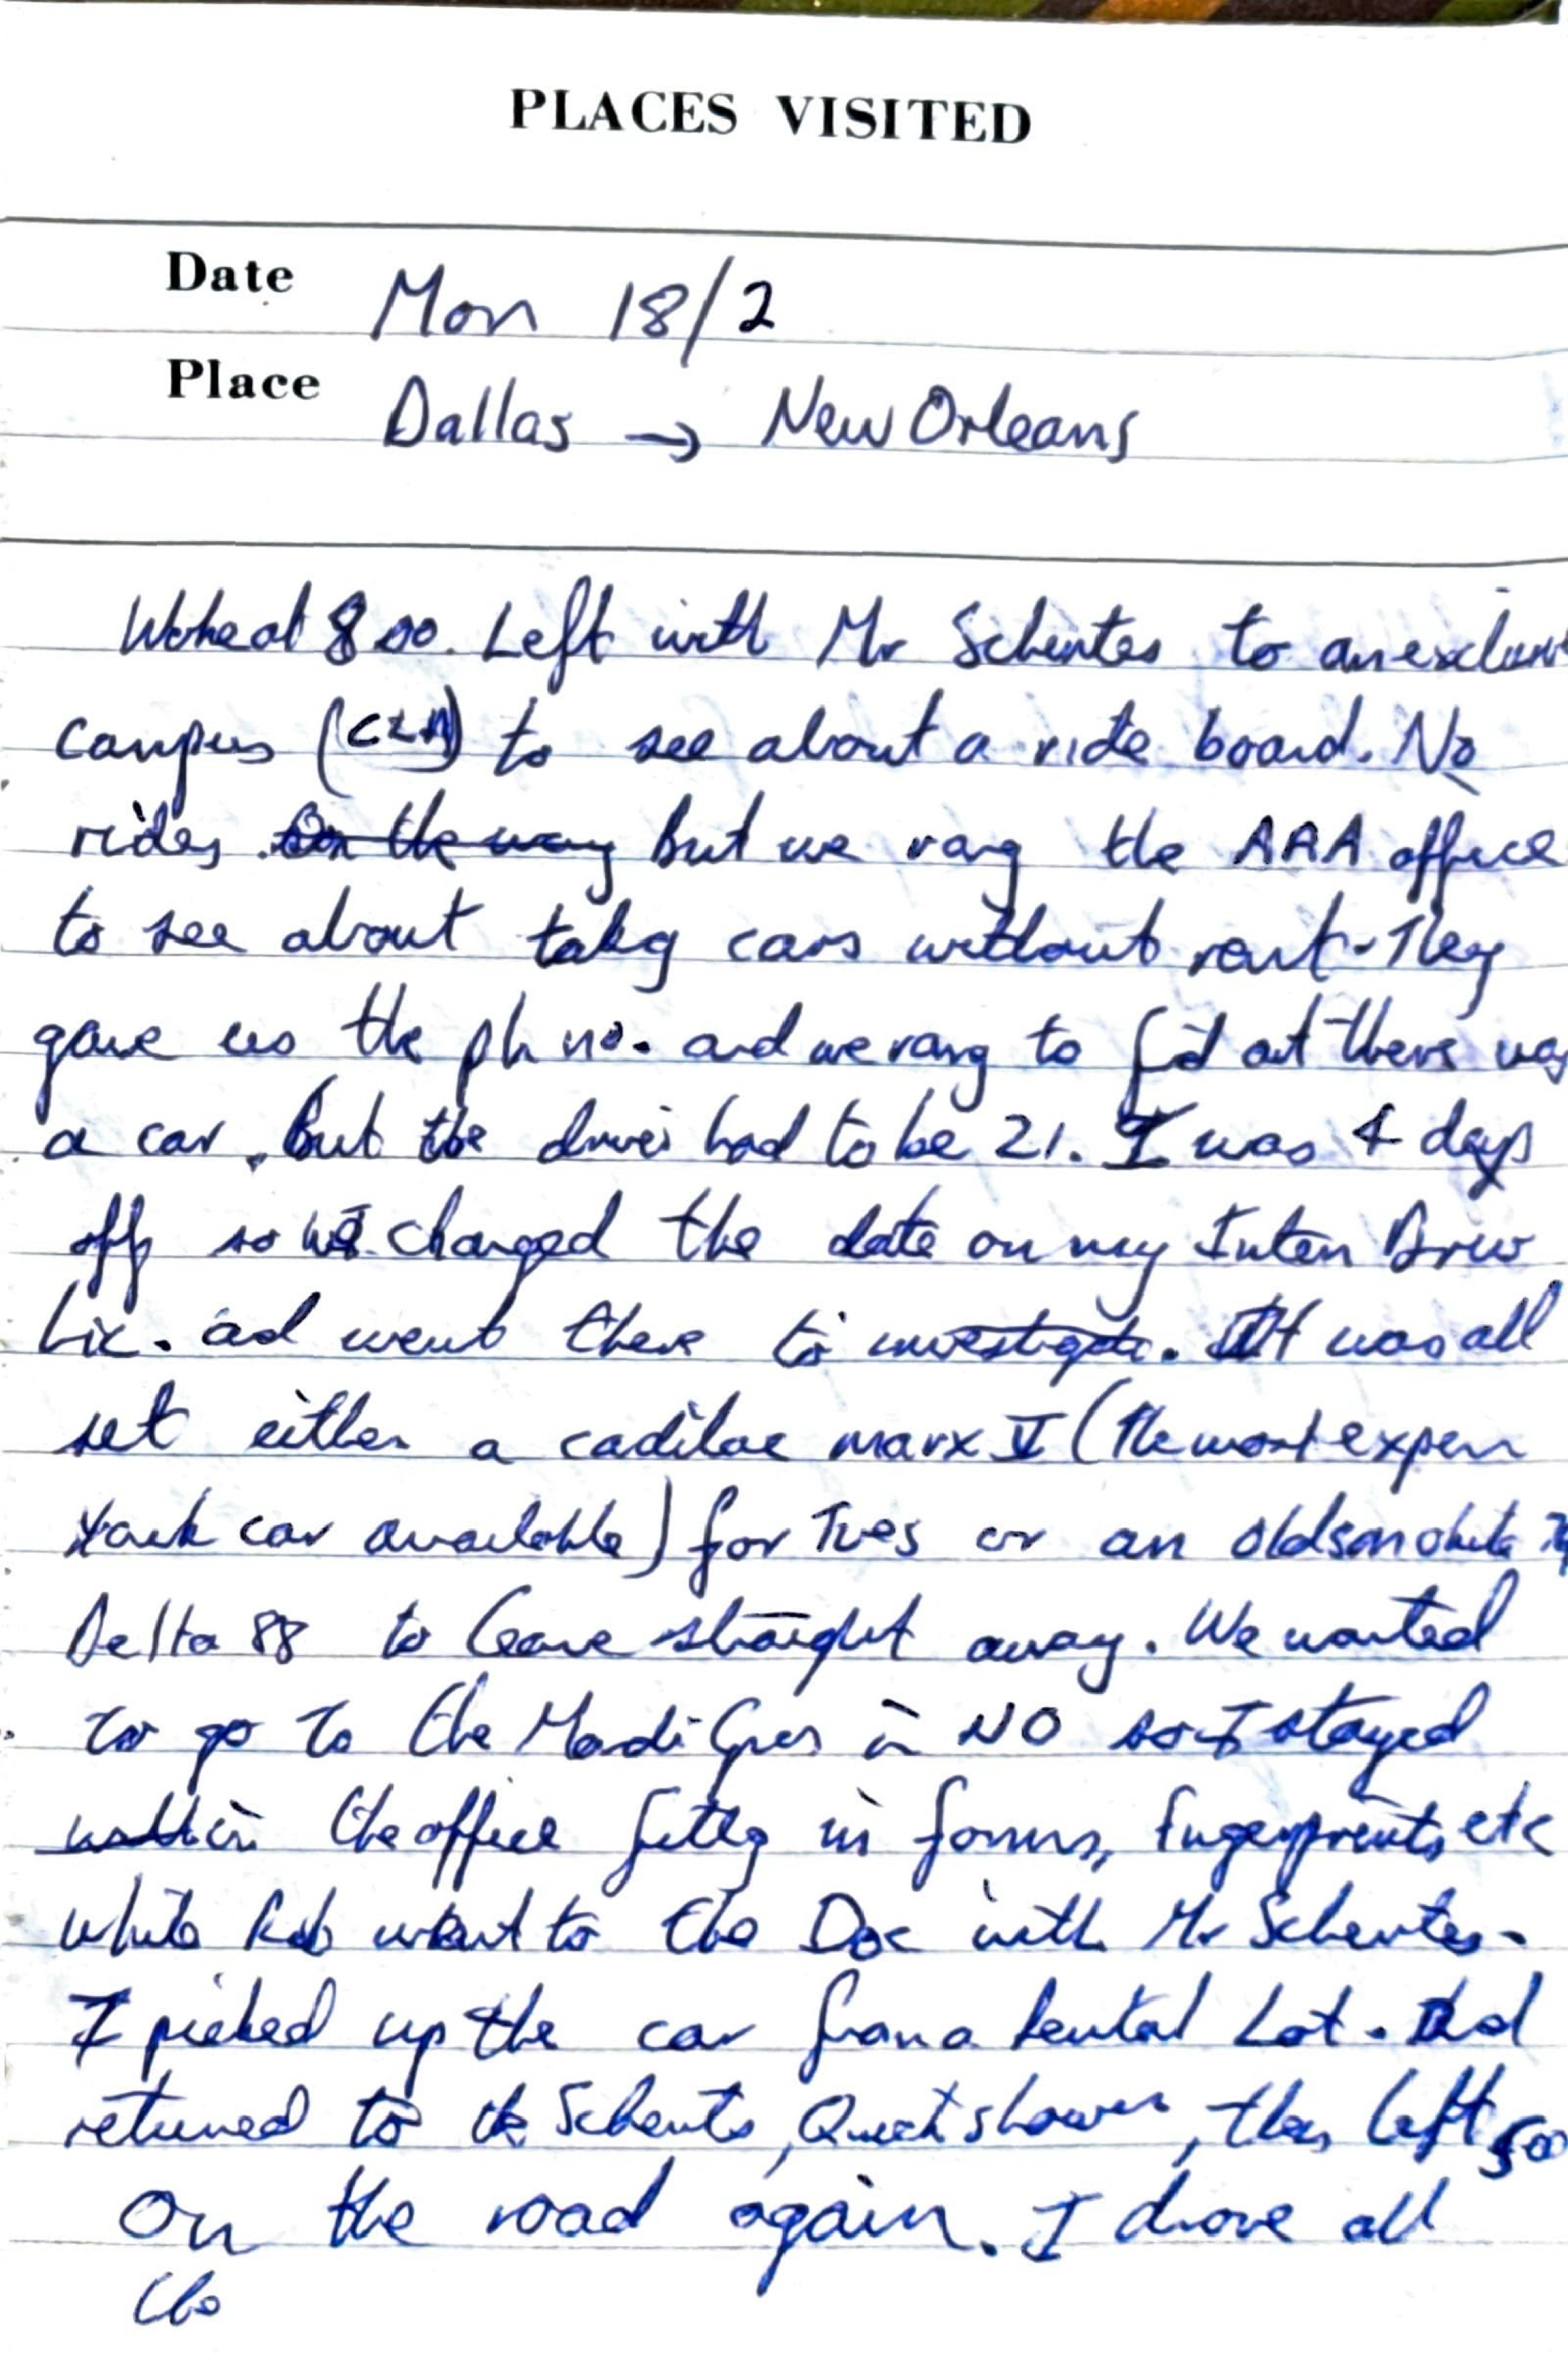 PLACES VISITED
Date Mon 18/2
Place Dallas → New Orleans
Woke at 8 00. Left with Mr to an
campus to see about a ride board. No
rides. On the way But we rang the AAA office
to see about takg cars without rent. They
gave us the ph no. and we rang to fid out there was
a car, but the driver had to be 21. I was 4 days
off so we changed the date on my Inten Driv
Lic. ad went there to investigate. It was all
set either a cadilac marx V (The most expen
car available) for Tues or an oldsmobile
Delta 88 to leave straight away. We wanted
to go to the Mardi Gras in NO so I stayed
in the office fillg in forms, fingerprints, etc
while Rob went to the Doc with Mr
I picked up the car from a Rental Lot. And
returned to the Quick shower, then left 500
On the road again. I drove all
the